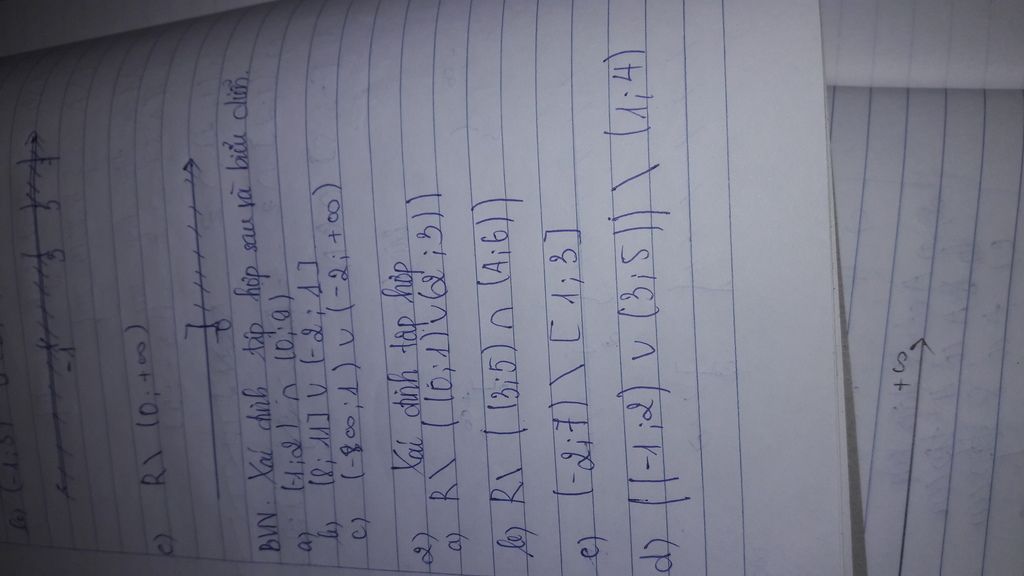 b) (-1;5)
-1 3 5
c) R\ (0;+∞)
0
BVN: Xác định tập hợp sau và biểu diễn.
a) (-1;2) ∩ (0;9)
b) [8;11] ∪ (-2;1]
c) (-∞;1) ∪ (-2;+∞)
2) Xác định tập hợp
a) R\ ((0;1) ∪ (2;3))
b) R\ ((3;5) ∩ (4;6))
c) (-2;7) \ [1;3]
d) ((-1;2) ∪ (3;5)) \ (1;4)
+∞